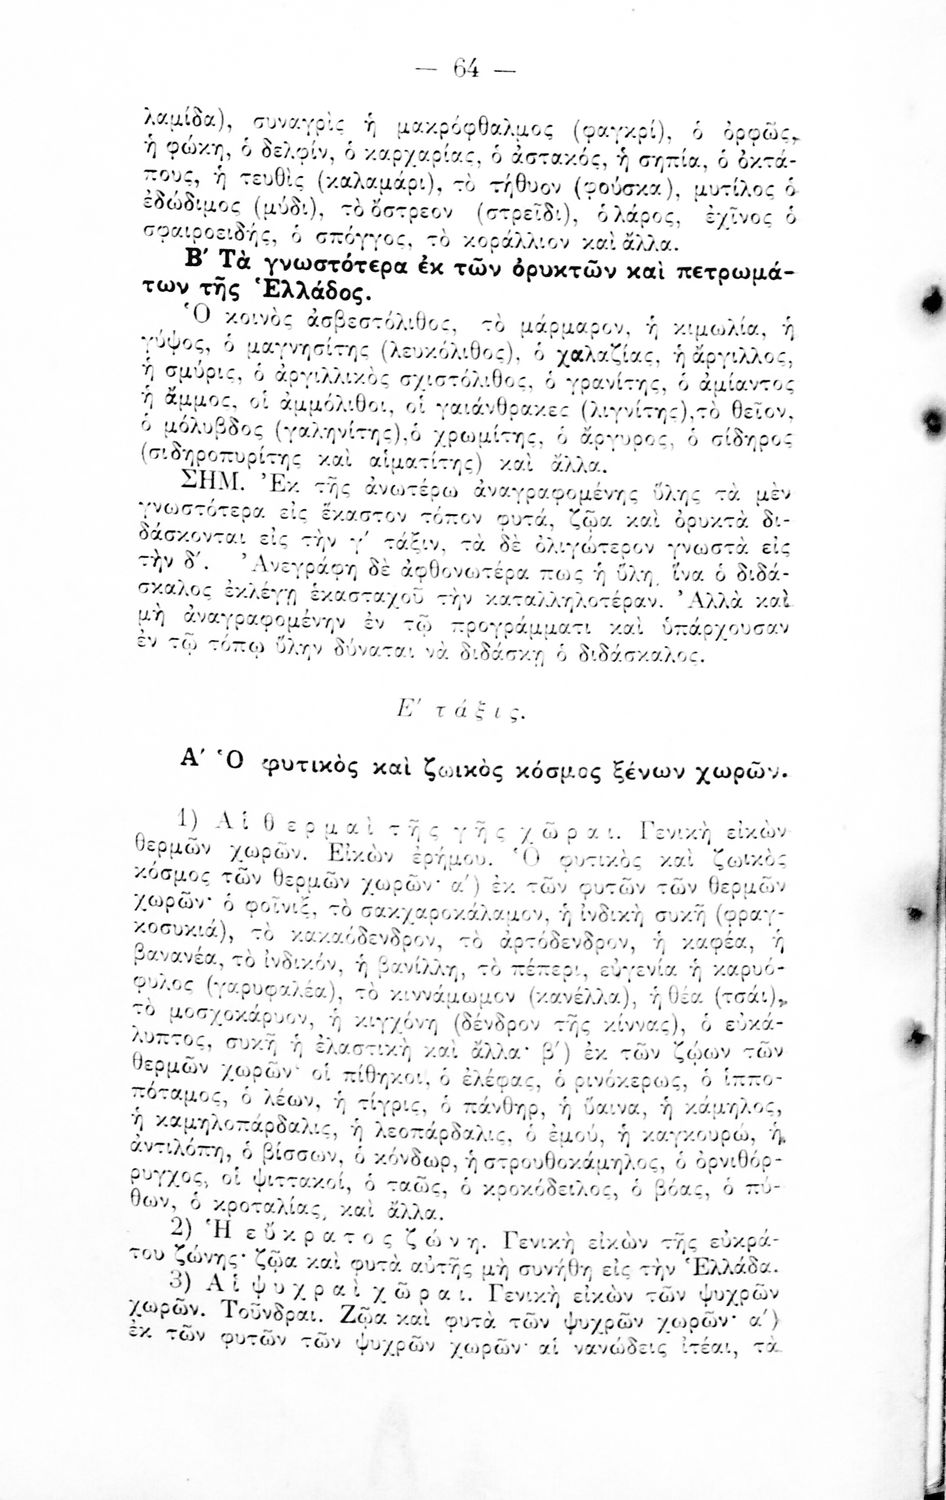 — 64 —
λαμίδα), συναγρὶς ἡ μακρόφθαλμος (φαγκρί), ὁ ὀρφῶς,
ἡ φώκη, ὁ δελφίν, ὁ καρχαρίας, ὁ ἀστακός, ἡ σηπία, ὁ ὀκτά-
πους, ἡ τευθὶς (καλαμάρι), τὸ τήθυον (φούσκα), μυτίλος ὁ
ἐδώδιμος (μύδι), τὸ ὄστρεον (στρεῖδι), ὁ λάρος, ἐχῖνος ὁ
σφαιροειδής, ὁ σπόγγος, τὸ κοράλλιον καὶ ἄλλα.
Β′ Τὰ γνωστότερα ἐκ τῶν ὀρυκτῶν καὶ πετρωμά-
των τῆς Ἑλλάδος.
Ὁ κοινὸς ἀσβεστόλιθος, τὸ μάρμαρον, ἡ κιμωλία, ἡ
γύψος, ὁ μαγνησίτης (λευκόλιθος), ὁ χαλαζίας, ἡ ἄργιλλος,
ἡ σμύρις, ὁ ἀργιλλικὸς σχιστόλιθος, ὁ γρανίτης, ὁ ἀμίαντος
ἡ ἄμμος, οἱ ἀμμόλιθοι, οἱ γαιάνθρακες (λιγνίτης),τὸ θεῖον,
ὁ μόλυβδος (γαληνίτης),ὁ χρωμίτης, ὁ ἄργυρος, ὁ σίδηρος
(σιδηροπυρίτης καὶ αἱματίτης) καὶ ἄλλα.
ΣΗΜ. Ἐκ τῆς ἀνωτέρω ἀναγραφομένης ὕλης τὰ μὲν
γνωστότερα εἰς ἕκαστον τόπον φυτά, ζῷα καὶ ὀρυκτὰ δι-
δάσκονται εἰς τὴν γ′ τάξιν, τὰ δὲ ὀλιγώτερον γνωστὰ εἰς
τὴν δ′. Ἀνεγράφη δὲ ἀφθονωτέρα πως ἡ ὕλη, ἵνα ὁ διδά-
σκαλος ἐκλέγῃ ἑκασταχοῦ τὴν καταλληλοτέραν. Ἀλλὰ καὶ
μὴ ἀναγραφομένην ἐν τῷ προγράμματι καὶ ὑπάρχουσαν
ἐν τῷ τόπῳ ὕλην δύναται νὰ διδάσκῃ ὁ διδάσκαλος.
Ε′ τάξις.
Α′ Ὁ φυτικὸς καὶ ζωικὸς κόσμος ξένων χωρῶν.
1) Αἱ θερμαὶ τῆς γῆς χῶραι. Γενικὴ εἰκὼν
θερμῶν χωρῶν. Εἰκὼν ἐρήμου. Ὁ φυτικὸς καὶ ζωικὸς
κόσμος τῶν θερμῶν χωρῶν· α′) ἐκ τῶν φυτῶν τῶν θερμῶν
χωρῶν· ὁ φοῖνιξ, τὸ σακχαροκάλαμον, ἡ ἰνδικὴ συκῆ (φραγ-
κοσυκιά), τὸ κακαόδενδρον, τὸ ἀρτόδενδρον, ἡ καφέα, ἡ
βανανέα, τὸ ἰνδικόν, ἡ βανίλλη, τὸ πέπερι, εὐγενία ἡ καρυό-
φυλος (γαρυφαλέα), τὸ κιννάμωμον (κανέλλα), ἡ θέα (τσάι),
τὸ μοσχοκάρυον, ἡ κιγχόνη (δένδρον τῆς κίννας), ὁ εὐκά-
λυπτος, συκῆ ἡ ἐλαστικὴ καὶ ἄλλα· β′) ἐκ τῶν ζῴων τῶν
θερμῶν χωρῶν· οἱ πίθηκοι, ὁ ἐλέφας, ὁ ρινόκερως, ὁ ἱππο-
πόταμος, ὁ λέων, ἡ τίγρις, ὁ πάνθηρ, ἡ ὕαινα, ἡ κάμηλος,
ἡ καμηλοπάρδαλις, ἡ λεοπάρδαλις, ὁ ἐμού, ἡ καγκουρώ, ἡ
ἀντιλόπη, ὁ βίσσων, ὁ κόνδωρ, ἡ στρουθοκάμηλος, ὁ ὀρνιθόρ-
ρυγχος, οἱ ψιττακοί, ὁ ταῶς, ὁ κροκόδειλος, ὁ βόας, ὁ πύ-
θων, ὁ κροταλίας, καὶ ἄλλα.
2) Ἡ εὔκρατος ζώνη. Γενικὴ εἰκὼν τῆς εὐκρά-
του ζώνης· ζῷα καὶ φυτὰ αὐτῆς μὴ συνήθη εἰς τὴν Ἑλλάδα.
3) Αἱ ψυχραὶ χῶραι. Γενικὴ εἰκὼν τῶν ψυχρῶν
χωρῶν. Τοῦνδραι. Ζῷα καὶ φυτὰ τῶν ψυχρῶν χωρῶν· α′)
ἐκ τῶν φυτῶν τῶν ψυχρῶν χωρῶν· αἱ νανώδεις ἰτέαι, τὰ